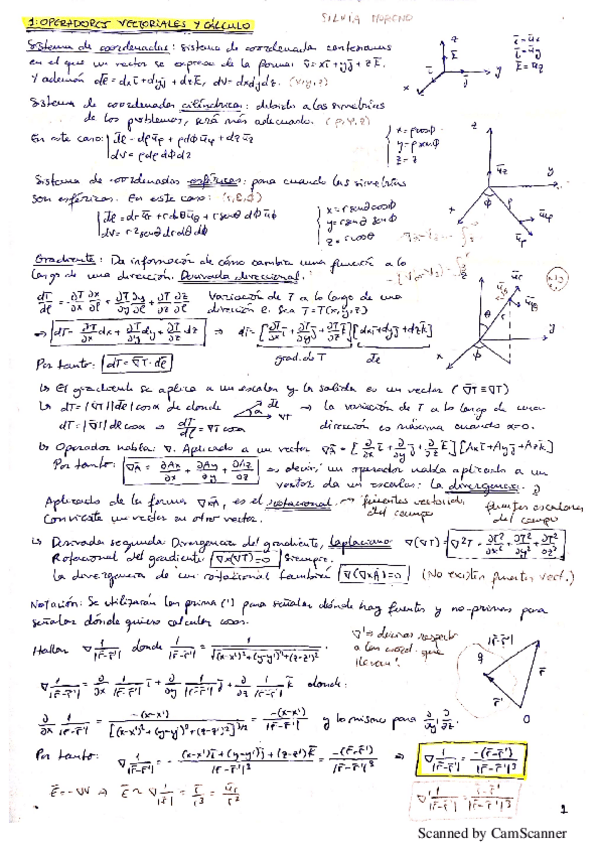 1: OPERADORES VECTORIALES Y CÁLCULO
SILVIA MORENO
Sistema de coordenadas: sistema de coordenadas cartesianas
en el que un vector se expresa de la forma: v̄ = xī + yj̄ + zk̄.
Y además dl̄ = dxī + dyj̄ + dzk̄, dV = dxdydz. (x,y,z)
ī = ūx
j̄ = ūy
k̄ = ūz
Sistema de coordenadas cilíndricas: debido a las simetrías
de los problemas, será más adecuado. (ρ,φ,z)
En este caso: dl̄ = dρūρ + ρdφūφ + dzūz
dV = ρdρdφdz
x = ρcosφ
y = ρsenφ
z = z
Sistema de coordenadas esféricas: para cuando las simetrías
son esféricas. En este caso: (r,θ,φ)
dl̄ = drūr + rdθūθ + rsenθdφūφ
dV = r²senθdrdθdφ
x = rsenθcosφ
y = rsenθsenφ
z = rcosθ
Gradiente: Da información de cómo cambia una función a lo
largo de una dirección. Derivada direccional.
dT/dl = ∂T/∂x ∂x/∂l + ∂T/∂y ∂y/∂l + ∂T/∂z ∂z/∂l Variación de T a lo largo de una
dirección l. Sea T = T(x,y,z)
⇒ dT = ∂T/∂x dx + ∂T/∂y dy + ∂T/∂z dz ⇒ dT = [∂T/∂x ī + ∂T/∂y j̄ + ∂T/∂z k̄][dxī + dyj̄ + dzk̄]
grad. de T dl̄
Por tanto: dT = ∇̄T · dl̄
↳ El gradiente se aplica a un escalar y la salida es un vector (∇̄T ≡ ∇T)
↳ dT = |∇T||dl̄|cosα de donde → la variación de T a lo largo de una
dT = |∇T|dl cosα ⇒ dT/dl = ∇T cosα dirección es máxima cuando α=0.
↳ Operador nabla: ∇. Aplicado a un vector ∇Ā = [∂/∂x ī + ∂/∂y j̄ + ∂/∂z k̄][Axī + Ayj̄ + Azk̄]
Por tanto: ∇Ā = ∂Ax/∂x + ∂Ay/∂y + ∂Az/∂z es decir, un operador nabla aplicado a un
vector da un escalar: la divergencia.
Aplicado de la forma ∇xĀ, es el rotacional. → fuentes vectoriales
del campo
fuentes escalares
del campo
Convierte un vector en otro vector.
↳ Derivada segunda. Divergencia del gradiente, Laplaciano ∇(∇T) = ∇²T = ∂T²/∂x² + ∂T²/∂y² + ∂T²/∂z²
Rotacional del gradiente ∇x(∇T)=0 siempre.
La divergencia de un rotacional también ∇(∇xĀ)=0 (No existen fuentes vect.)
Notación: Se utilizarán las prima (') para señalar dónde hay fuentes y no-primas para
señalar dónde quiero calcular cosas.
Hallar ∇ 1/|r̄-r̄'| donde 1/|r̄-r̄'| = 1/√((x-x')²+(y-y')²+(z-z')²)
∇ 1/|r̄-r̄'| = ∂/∂x 1/|r̄-r̄'| ī + ∂/∂y 1/|r̄-r̄'| j̄ + ∂/∂z 1/|r̄-r̄'| k̄ donde:
∂/∂x 1/|r̄-r̄'| = -(x-x')/[(x-x')²+(y-y')²+(z-z')²]^3/2 = -(x-x')/|r̄-r̄'|³ y lo mismo para ∂/∂y, ∂/∂z.
Por tanto: ∇ 1/|r̄-r̄'| = - (x-x')ī+(y-y')j̄+(z-z')k̄/|r̄-r̄'|³ = -(r̄-r̄')/|r̄-r̄'|³ ⇒ ∇ 1/|r̄-r̄'| = -(r̄-r̄')/|r̄-r̄'|³
Ē = -∇V ⇒ Ē ~ ∇ 1/|r̄| = r̄/r³ = ūr/r²
∇' 1/|r̄-r̄'| = r̄-r̄'/|r̄-r̄'|³
1
Scanned by CamScanner